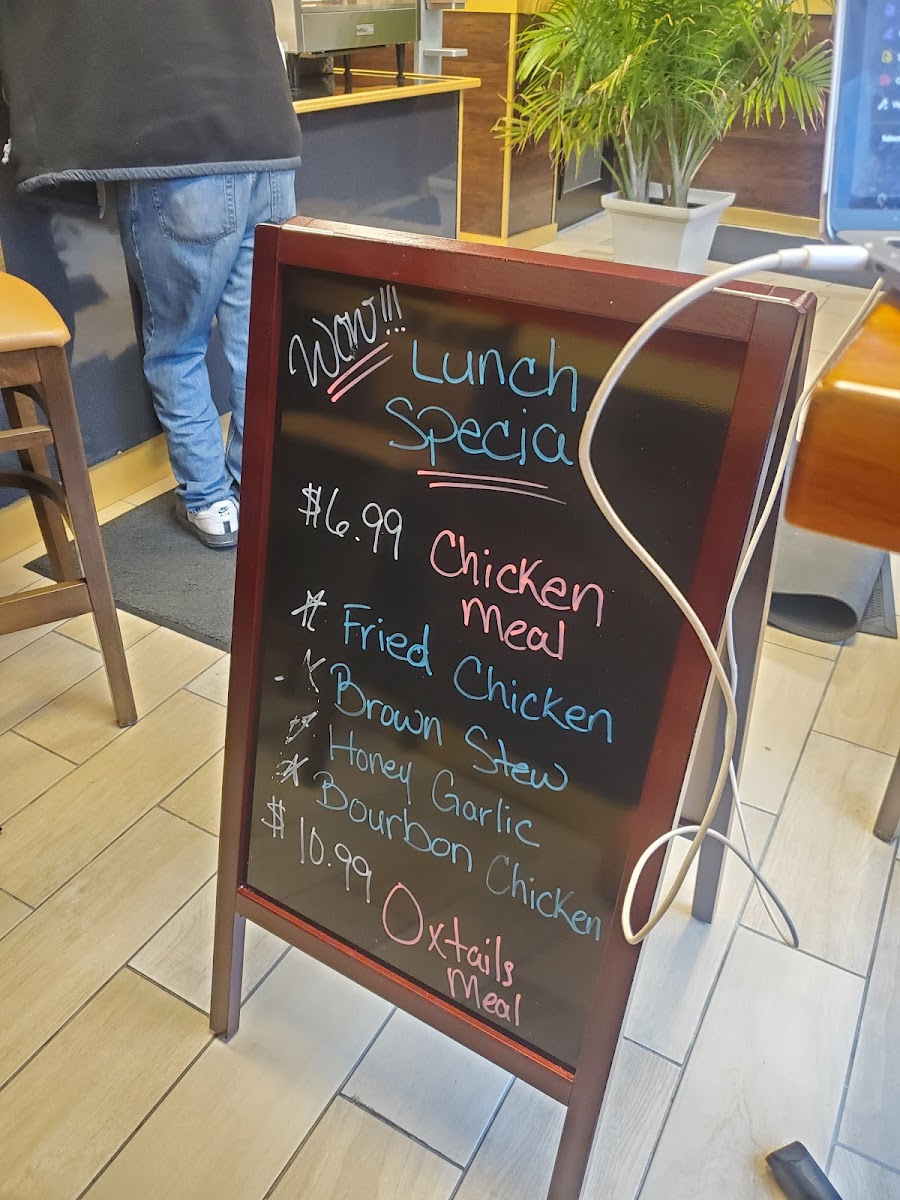 Wow!!!
Lunch
Specia
$6.99
Chicken
meal
Fried Chicken
Brown Stew
Honey Garlic
Bourbon Chicken
$10.99
Oxtails
meal